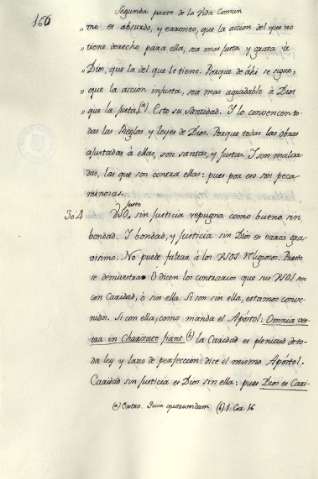 166
Segunda parte de la Vida Comun
„ me es absurdo, y erroneo, que la accion del que no
„ tiene derecho para ella, sea mas justa y grata à
„ Dios, que la del que le tiene. Porque de ahi se sigue,
„ que la accion injusta, sea mas agradable à Dios
„ que la justa.(a) Esto su Santidad. I lo convencen to
das las Reglas y leyes de Dios. Porque todas las obras
ajustadas à ellas, son santas, y justas. I son malva
das, las que son contra ellas: pues por eso son peca
minosas.
304 justo
sin justicia repugna como bueno sin
bondad. I bondad, y justicia sin Dios es error gra
visimo. No puede faltar à los VSOS Religiosos. Puesto
se demuestra. O dicen los contrarios que sus VSOS son
con Caridad, ò sin ella. Si son sin ella, estamos conve
nidos. Si con ella; como manda el Apóstol: Omnia ves
tra in Charitate fiant (b) la Caridad es plenitud de to
da ley y lazo de perfeccion: dice el mismo Apóstol.
Caridad sin justicia es Dios sin ella: pues Dios es Cari-
(a) quærendam (b) 1. Cor. 16